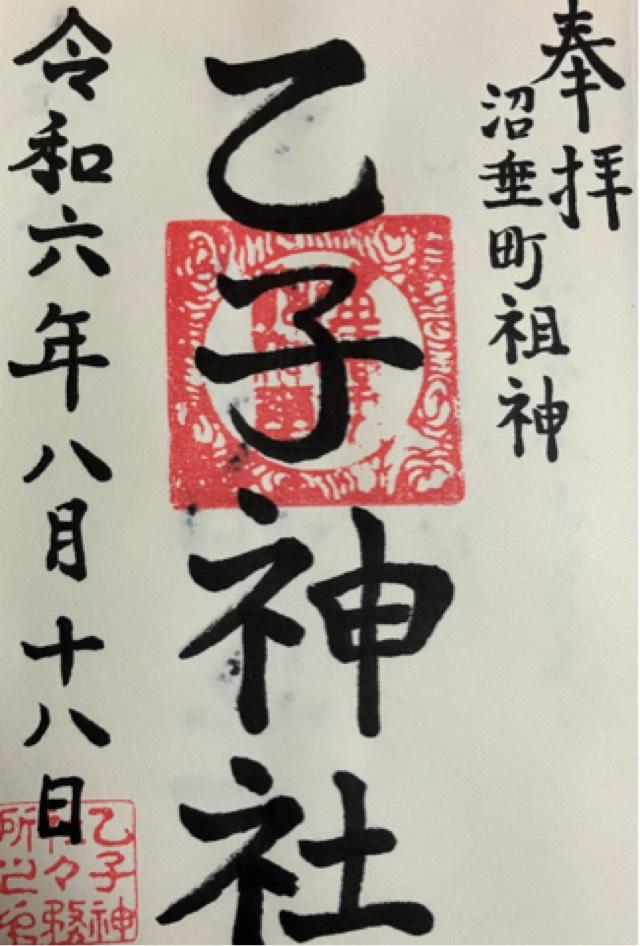 奉拝
沼垂町祖神
乙子神社
令和六年八月十八日
乙子神
社々務
所之印